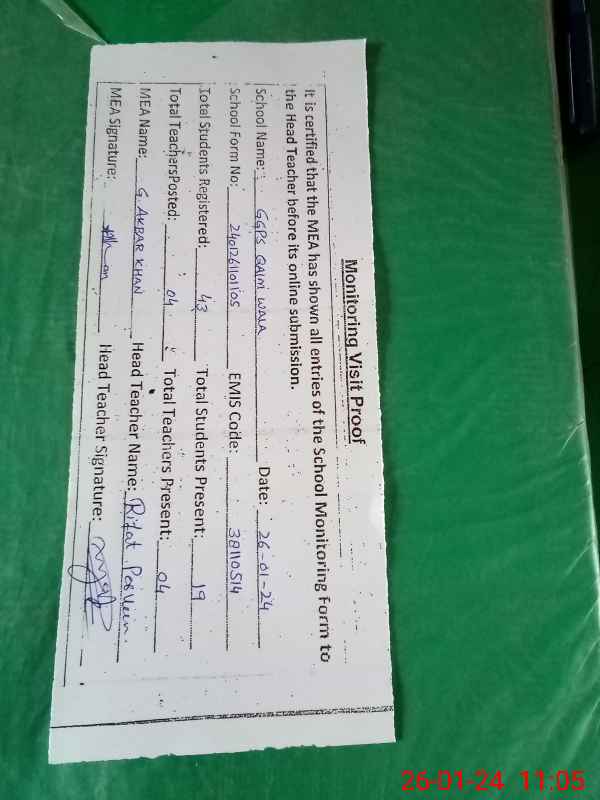 Monitoring Visit Proof
It is certified that the MEA has shown all entries of the School Monitoring Form to
the Head Teacher before its online submission.
School Name: GGPS QAIM WALA Date: 26-01-24
School Form No: 24012611011105 EMIS Code: 38110514
Total Students Registered: 43 Total Students Present: 19
Total TeachersPosted: 04 Total Teachers Present: 04
MEA Name: G. AKBAR KHAN Head Teacher Name: Rifat Perveen.
MEA Signature: Head Teacher Signature:
26-01-24 11:05